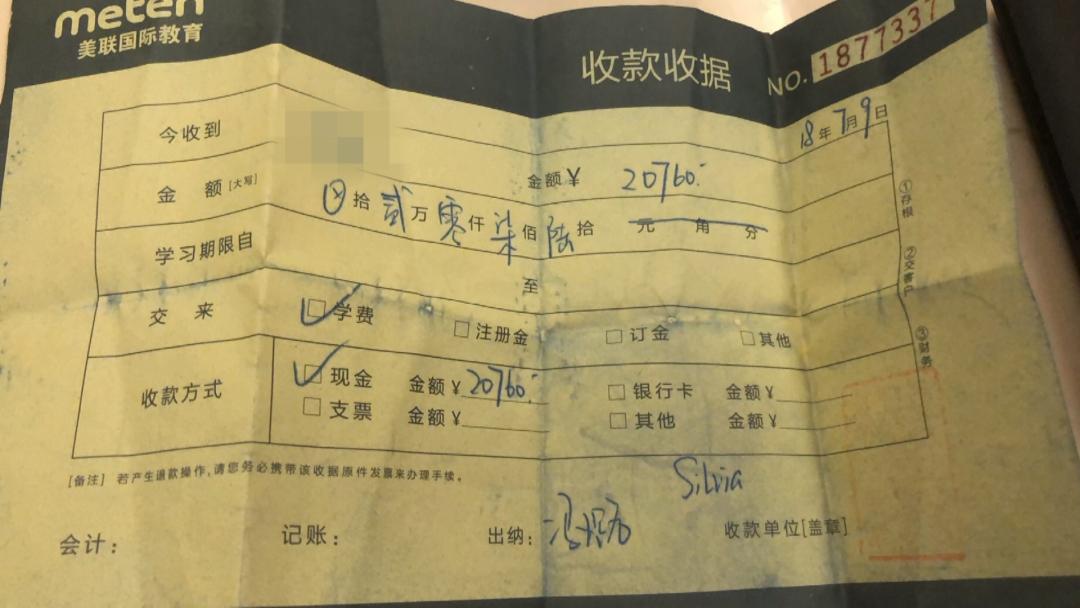 meten
美联国际教育
收款收据 NO. 1877337
18年7月9日
今收到
金额[大写] 金额¥ 20760.
⊗拾贰万零仟柒佰陆拾元角分
学习期限自 至
交来 学费 注册金 订金 其他
收款方式 现金 金额¥20760. 银行卡 金额¥
支票 金额¥ 其他 金额¥
①存根 ②交客户 ③财务
[备注] 若产生退款操作,请您务必携带该收据原件发票来办理手续。
Silvia
会计: 记账: 出纳: 收款单位[盖章]